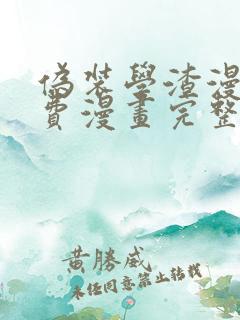 偽裝學渣漫
費漫畫完整
黃勝威
未经同意禁止转载